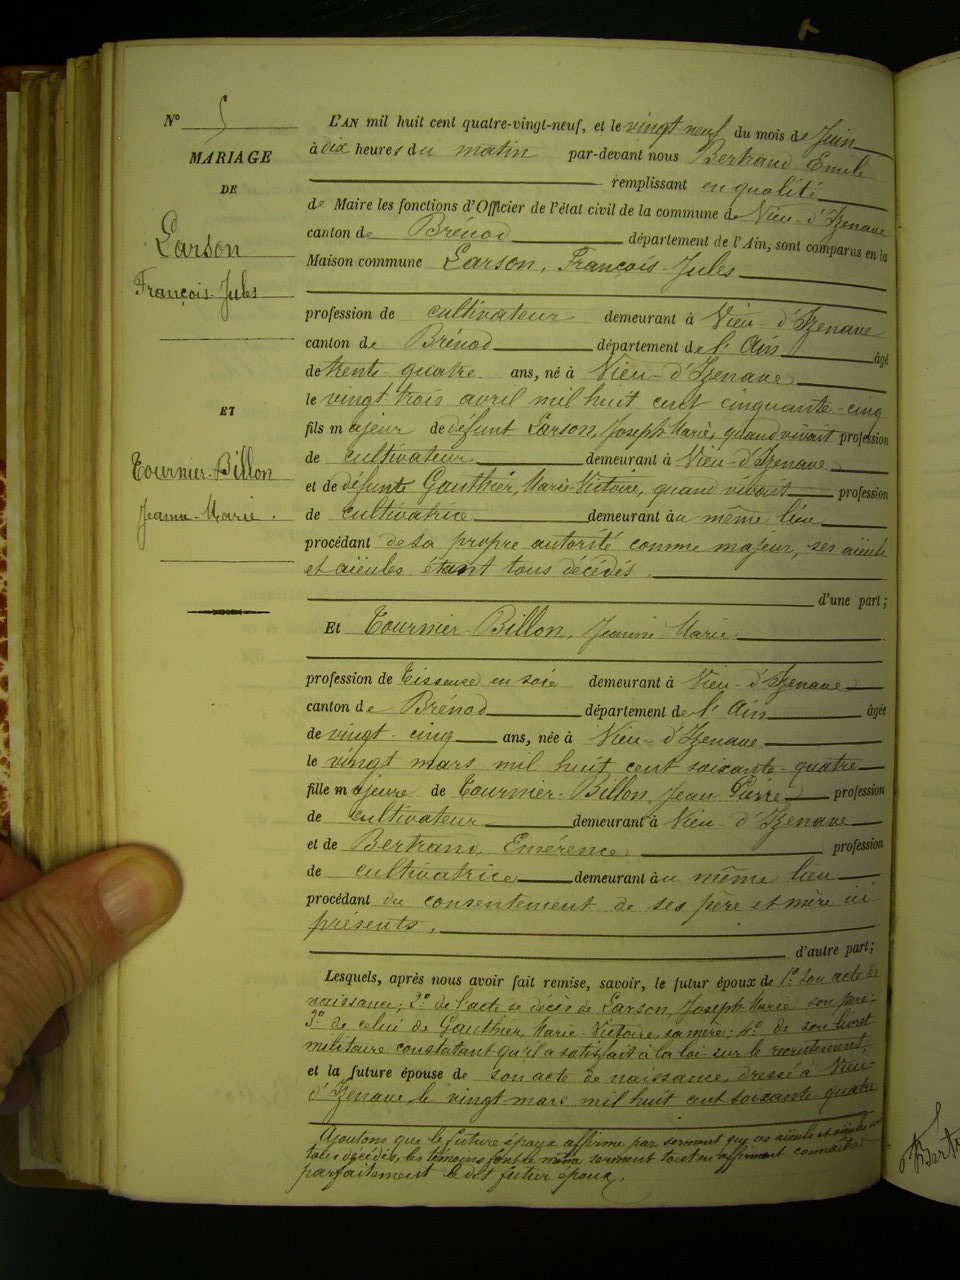 N° 5
MARIAGE
DE
Larson
François-Jules
ET
Tournier-Billon
Jeanne-Marie.
L'AN mil huit cent quatre-vingt-neuf, et le vingt-neuf du mois de Juin
à dix heures du matin par-devant nous Bertrand Emile
remplissant en qualité
de Maire les fonctions d'Officier de l'état civil de la commune de Vieu-d'Izenave
canton de Brénod département de l'Ain, sont comparus en la
Maison commune Larson, François-Jules
profession de cultivateur demeurant à Vieu-d'Izenave
canton de Brénod département de l'Ain âgé
de trente-quatre ans, né à Vieu-d'Izenave
le vingt-trois avril mil huit cent cinquante-cinq
fils majeur de défunt Larson, Joseph-Marie, quand vivait profession
de cultivateur demeurant à Vieu-d'Izenave
et de défunte Gauthier, Marie-Victoire, quand vivait profession
de cultivatrice demeurant au même lieu
procédant de sa propre autorité comme majeur, ses aïeuls
et aïeules étant tous décédés,
d'une part;
Et Tournier-Billon, Jeanne-Marie
profession de Tisseuse en soie demeurant à Vieu-d'Izenave
canton de Brénod département de l'Ain âgée
de vingt-cinq ans, née à Vieu-d'Izenave
le vingt mars mil huit cent soixante-quatre
fille majeure de Tournier-Billon, Jean-Pierre profession
de cultivateur demeurant à Vieu-d'Izenave
et de Bertrand, Emérence profession
de cultivatrice demeurant au même lieu
procédant du consentement de ses père et mère ici
présents,
d'autre part;
Lesquels, après nous avoir fait remise, savoir, le futur époux de 1° son acte de
naissance; 2° de l'acte de décès de Larson, Joseph-Marie son père;
3° de celui de Gauthier, Marie-Victoire, sa mère; 4° de son livret
militaire constatant qu'il a satisfait à la loi sur le recrutement;
et la future épouse de son acte de naissance, dressé à Vieu-
d'Izenave, le vingt mars mil huit cent soixante quatre
Ajoutons que le futur époux affirme par serment que ses aïeuls et aïeules sont
tous décédés, les témoins font le même serment tout en affirmant connaître
parfaitement le dit futur époux.